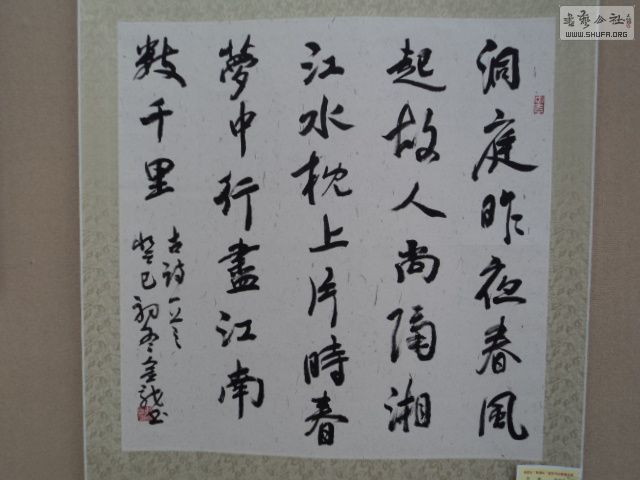 洞庭昨夜春風
起故人尚隔湘
江水枕上片時春
夢中行盡江南
數千里
古詩一首
癸巳初冬金龍书
書藝公社
WWW.SHUFA.ORG